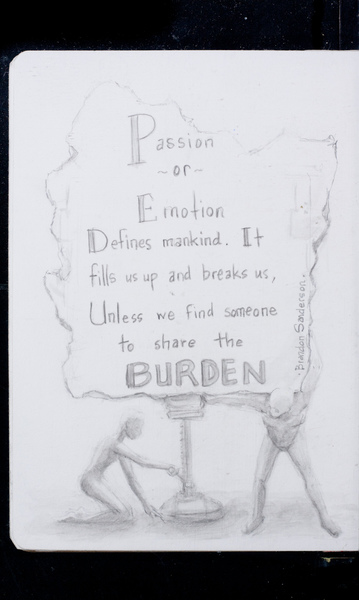 Passion
~ or ~
Emotion
Defines mankind. It
fills us up and breaks us,
Unless we find someone
to share the
BURDEN
Brandon Sanderson.